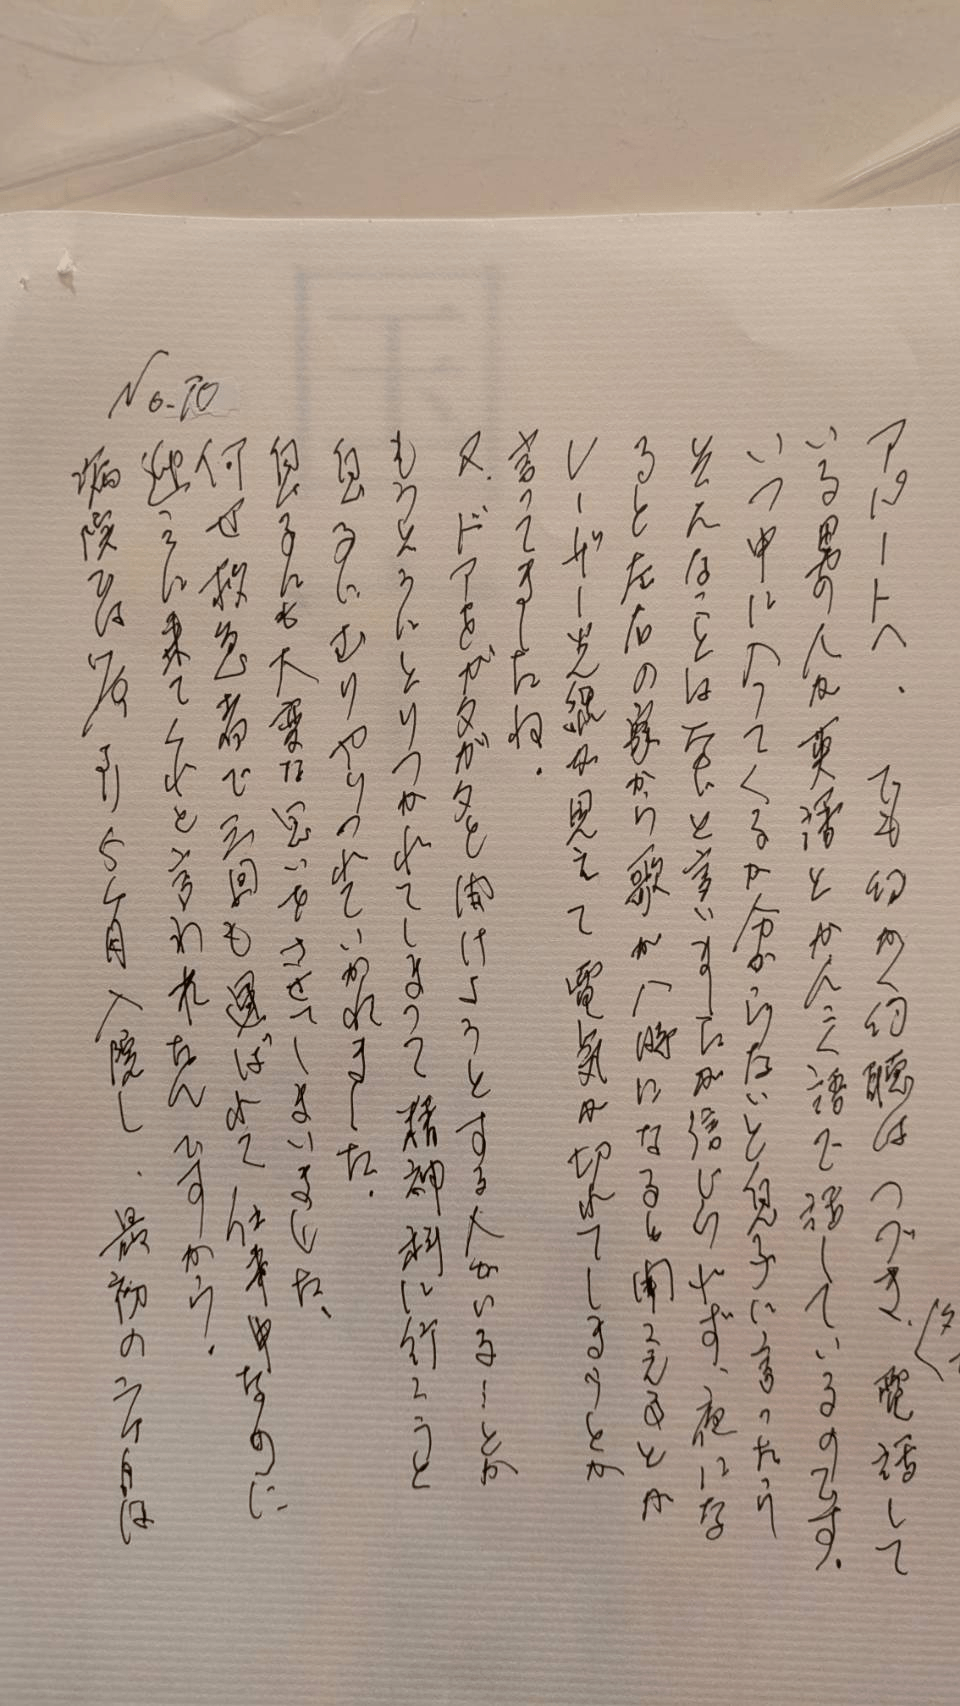 アパートへ. でも幻かく幻聴はつづき、電話して
いる男の人が英語とかんこく語で話しているのです.
いつ中に入ってくるか分からないと息子に言ったり
そんなことは ないと言いましたが信じられず、夜にな
ると左右の家から歌が八時になると聞こえるとか
レーザー光線が見えて電気が切れてしまうとか
言ってましたね.
又、ドアをガタガタと開けようとする人がいるとか
もうそうにとりつかれてしまって精神科に行こうと
息子に むりやりつれていかれました.
息子にも大変な思いをさせてしまいました、
何せ救急者で三回も運ばれて 仕事中なのに
迎えに来てくれと言われたんですから.
No.70
病院では 5ヶ月入院し、最初の 二ヶ月は